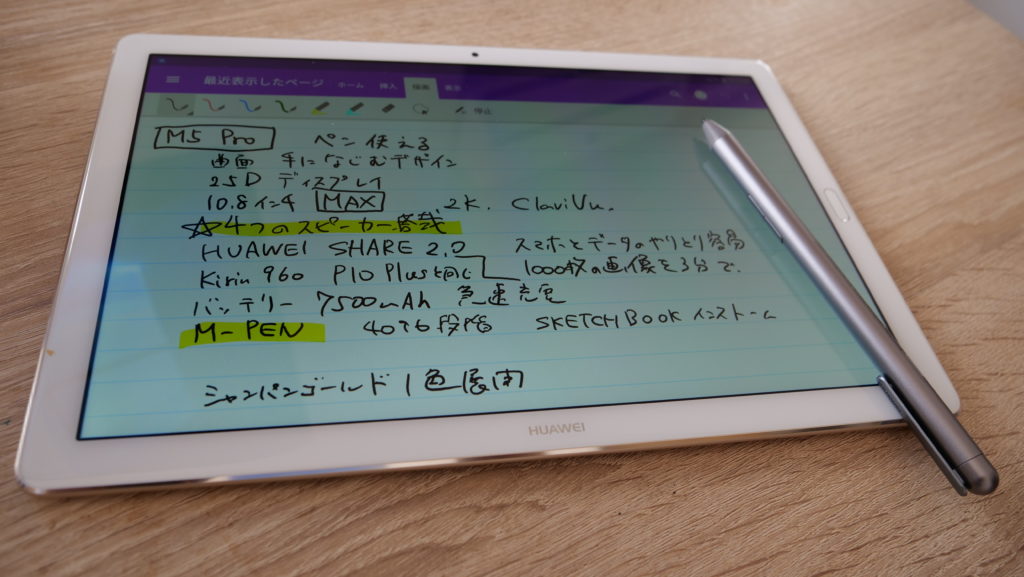 最近表示したページ ホーム 挿入 描画 表示
停止
M5 Pro ペン使える
画面 手になじむデザイン
2.5D ディスプレイ
10.8インチ MAX 2K. ClariVu.
☆4つのスピーカー搭載
HUAWEI SHARE 2.0 スマホとデータのやりとり容易
Kirin 960 P10 Plusと同じ 1000枚の画像を3分で.
バッテリー 7500mAh 急速充電
M-PEN 4096段階 SKETCHBOOK インストール
シャンパンゴールド 1色展開
HUAWEI